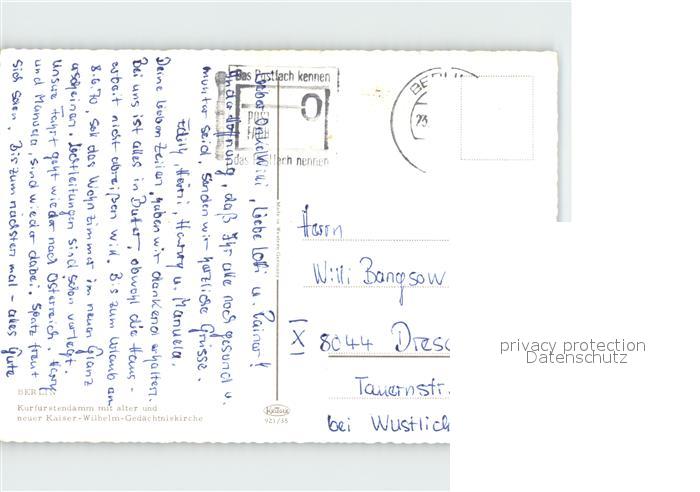 Lieber Onkel Willi, liebe Lotti u. Rainer!
In der Hoffnung, daß Ihr alle noch gesund u.
munter seid, senden wir herzliche Grüsse.
Edith, Heini, Harry u. Manuela.
Deine lieben Zeilen, haben wir dankend erhalten.
Bei uns ist alles in Butter, obwohl die Haus-
arbeit nicht abreißen will. Bis zum Urlaub am
8.6.70, soll das Wohnzimmer im neuen Glanz
erscheinen. Lichtleitungen sind schon verlegt.
Unsere Fahrt geht wieder nach Österreich. Harry
und Manuela, sind wieder dabei. freut
sich schon. Bis zum nächsten mal - alles Gute
BERLIN
Kurfürstendamm mit alter und
neuer Kaiser-Wilhelm-Gedächtniskirche
Das Postfach kennen
POST
FACH
das Postfach nennen
BERLIN
23.
Made in Western Germany
Krüger
921/35
Herrn
Willi Bangsow
X 8044 Dresd
Tauernstr.
bei Wustlich
privacy protection
Datenschutz